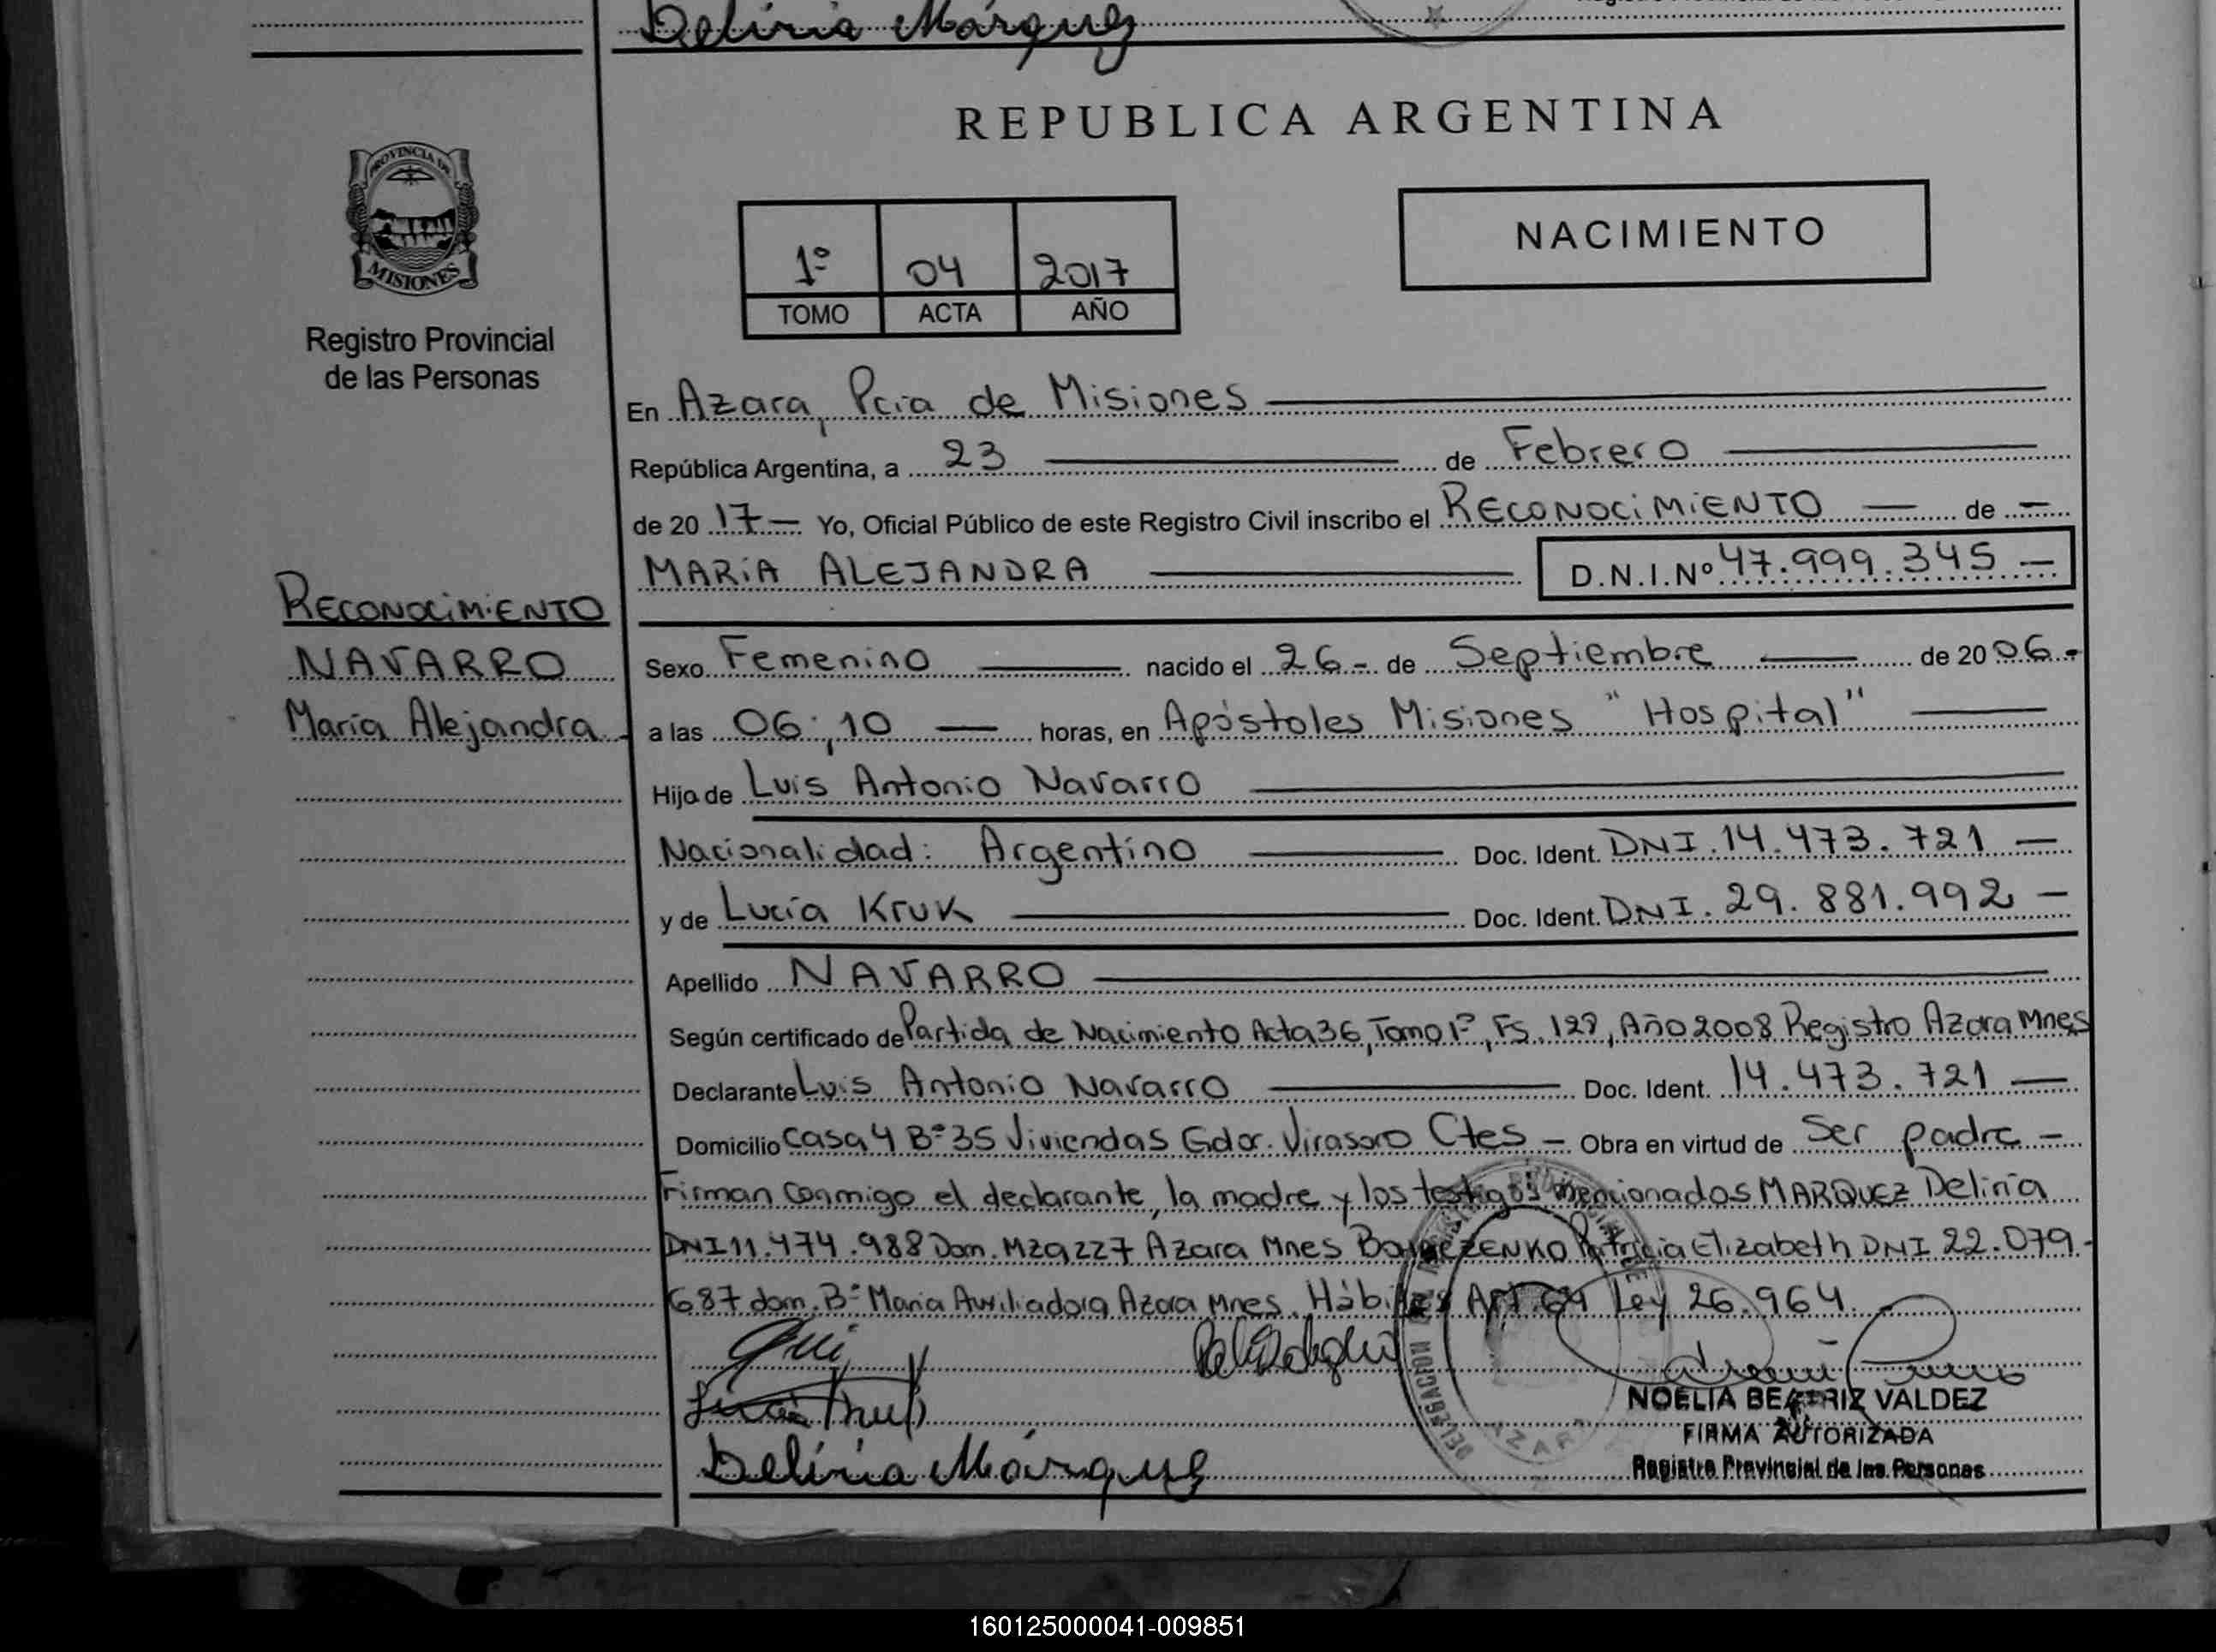 Deliria Márquez
REPUBLICA ARGENTINA
PROVINCIA DE
MISIONES
Registro Provincial
de las Personas
1º 04 2017
TOMO ACTA AÑO
NACIMIENTO
En Azara, Pcia de Misiones
República Argentina, a 23 de Febrero
de 20 17 — Yo, Oficial Público de este Registro Civil inscribo el RECONOCIMIENTO — de —
MARIA ALEJANDRA D.N.I.Nº 47.999.345 —
RECONOCIMIENTO
NAVARRO
María Alejandra
Sexo Femenino nacido el 26 - de Septiembre de 20 06 -
a las 06:10 — horas, en Apóstoles Misiones "Hospital"
Hija de Luis Antonio Navarro
Nacionalidad: Argentino Doc. Ident. DNI. 14.473.721 —
y de Lucía Kruk Doc. Ident. DNI. 29.881.992 —
Apellido NAVARRO
Según certificado de Partida de Nacimiento Acta 36, Tomo 1º, Fs. , Año 2008 Registro Azara Mnes
Declarante Luis Antonio Navarro Doc. Ident. 14.473.721 —
Domicilio Casa 4 Bº 35 Viviendas Gdor. Virasoro Ctes - Obra en virtud de Ser padre -
Firman conmigo el declarante, la madre y los testigos mencionados MARQUEZ Deliria
DNI 11.474.988 Dom. Mza 227 Azara Mnes Patricia Elizabeth DNI 22.079.
687 dom. Bº Maria Auxiliadora Azara Mnes. Hábiles Art. 64 Ley 26.964.
Deliria Márquez
DELEGACION
AZARA
NOELIA BEATRIZ VALDEZ
FIRMA AUTORIZADA
Registro Provincial de las Personas
160125000041-009851